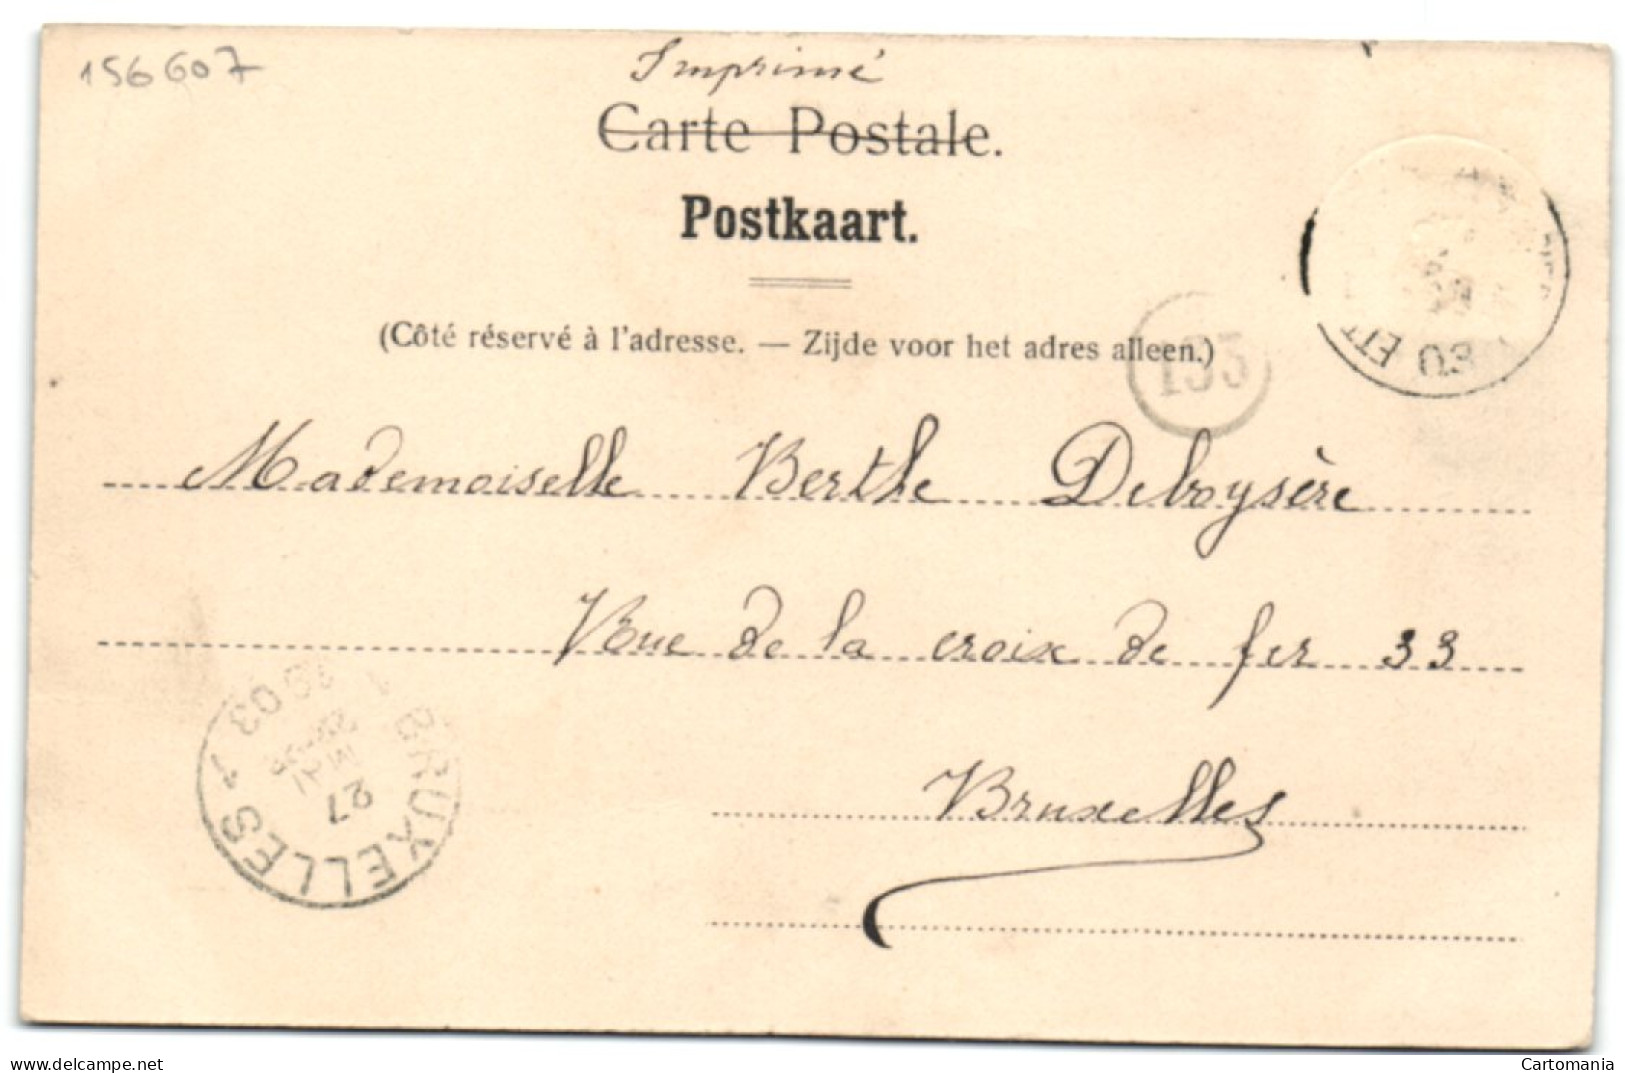 156607
Imprimé
Carte Postale.
Postkaart.
(Côté réservé à l'adresse. — Zijde voor het adres alleen.)
03
Mademoiselle Berthe Debaysère
Rue de la croix de fer 33
Bruxelles
BRUXELLES
27
03
www.delcampe.net
Cartomania